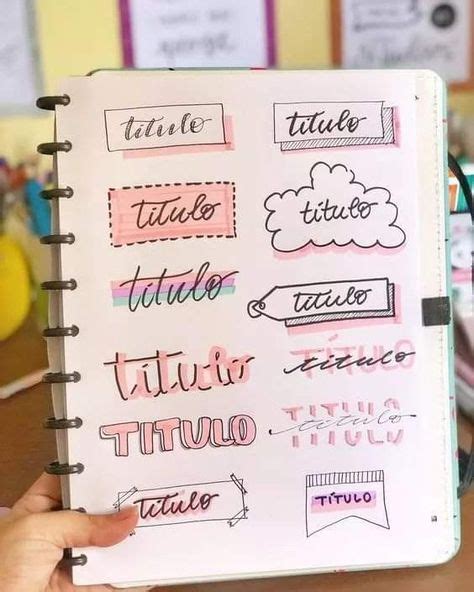 título título
título título
título título
título TÍTULO título
TITULO TITULO título
título TÍTULO